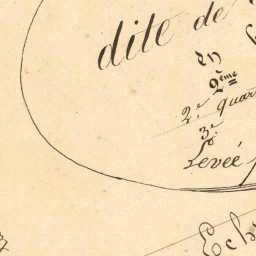 dite de
en
2ème
2e quar
3e
Levée p
Ech